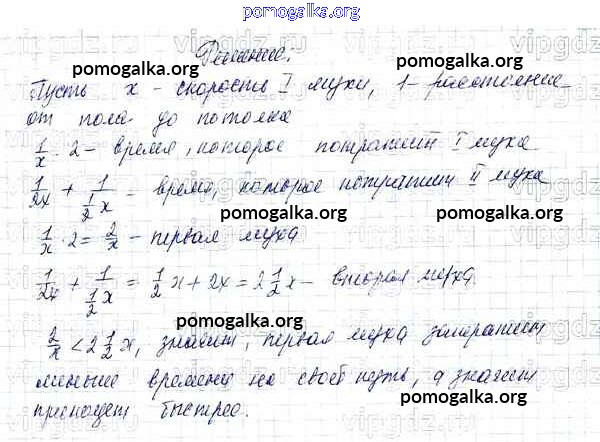 pomogalka.org
Решение:
pomogalka.org pomogalka.org
Пусть x - скорость I мухи, 1 - расстояние
от пола до потолка
1/x · 2 - время, которое потратит I муха
1/2x + 1/(1/2 x) - время, которое потратит II муха
pomogalka.org pomogalka.org
1/x · 2 = 2/x - первая муха
1/2x + 1/(1/2 x) = 1/2 x + 2x = 2 1/2 x - вторая муха.
pomogalka.org
2/x < 2 1/2 x, значит, первая муха затратит
меньше времени на свой путь, а значит
pomogalka.org pomogalka.org
приползет быстрее.